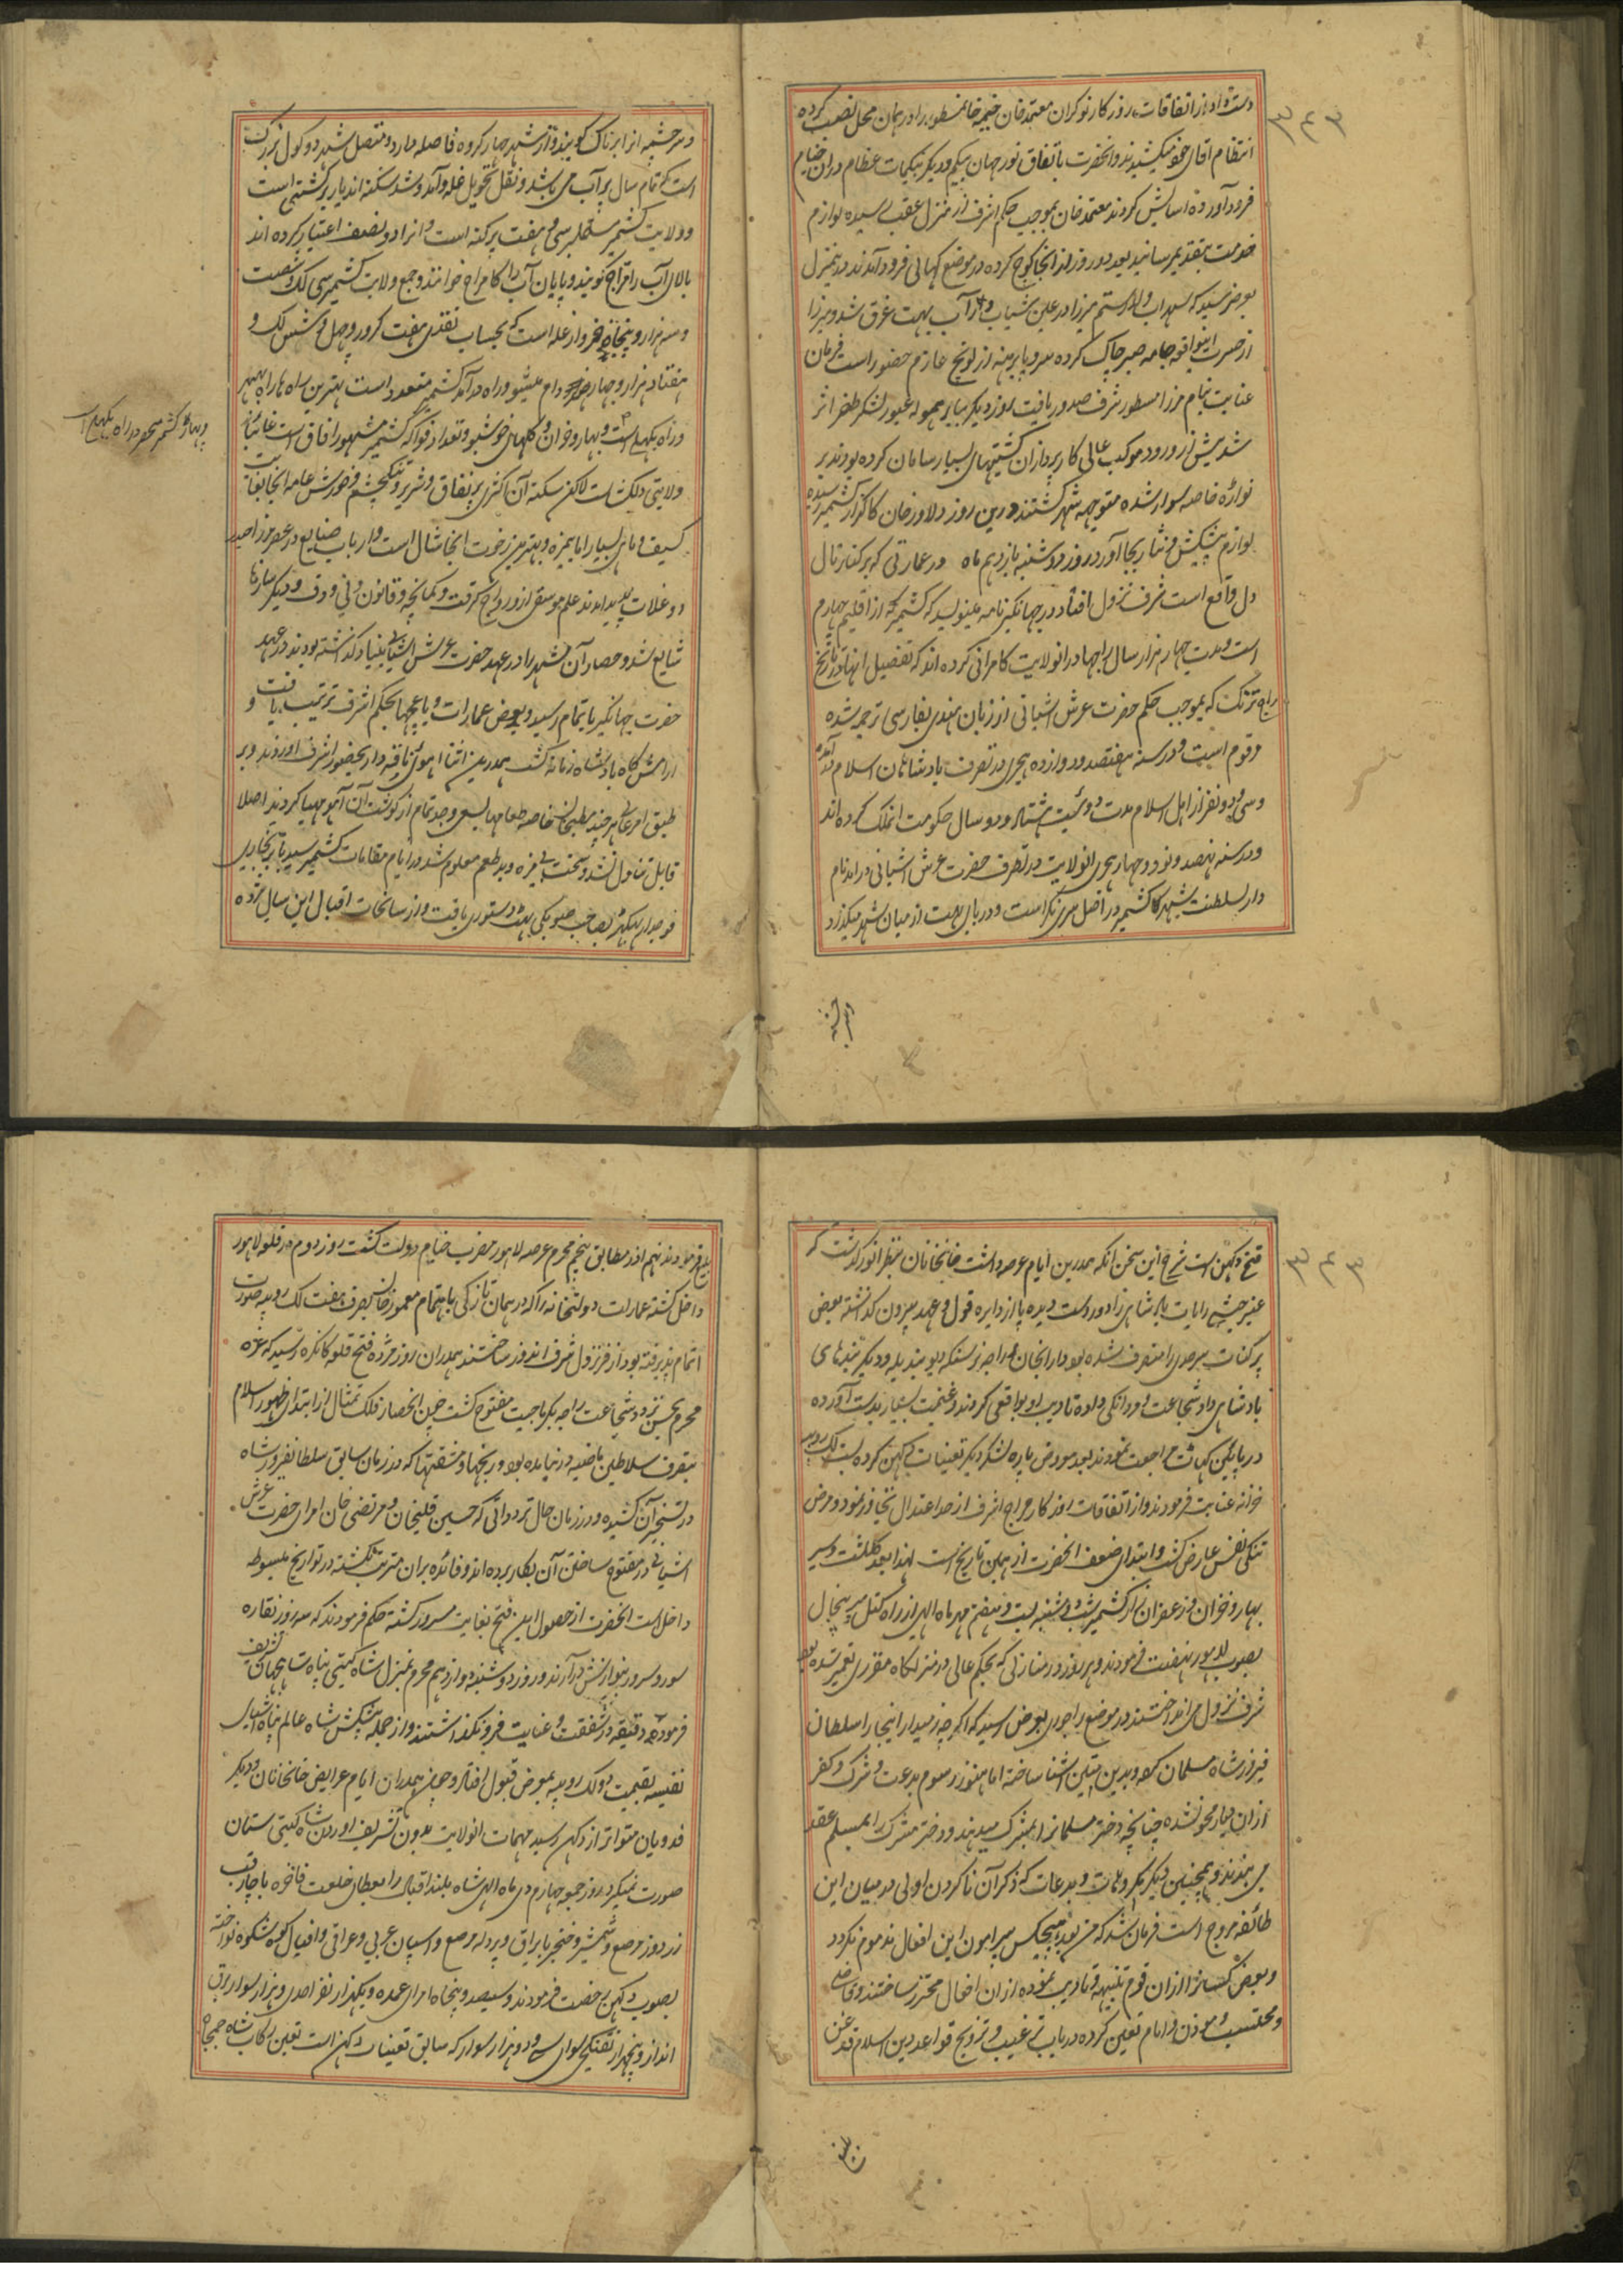 دست داد از اتفاقات روزکار نوکران معتمد خان خیمه خانمسطور را در همان محل نصب کرده
انتظام اقای خود میکشیدند و انحضرت باتفاق نور جهان بیکم و دیکر بیکمات عظام دران خیام
فرود آورده اسایش کردند معتمد خان بموجب حکم اشرف از منزل عقب رسیده لوازم
خدمت بتقدیم رسانید بعد دو روز از انجا کوچ کرده در موضع فرود آمدند در ینمنزل
بعرض رسید که سهراب ولد رستم میرزا در عین شباب در آب بهت غرق شد و میرزا
از حسرت اینواقعه جامه صبر چاک کرده سر و پا برهنه از لونچ عازم حضور است فرمان
عنایت بنام مرزا مسطور شرف صدور یافت روز دیکر بباره موله عبور لشکر ظفر اثر
شد پیش از ورود موکب عالی کارپردازان کشتیهای بسیار سامان کرده بودند بر
نواره خاصه سوار شده متوجه شهر کشتند درین روز دلاور خان کاکر از کشمیر رسیده
لوازم پیشکش و نثار بجا آورد روز دوشنبه یازدهم ماه در عمارتی که بر کنار تال
دل واقع است شرف نزول افتاد در جهانکیر نامه مینویسد که کشمیر که از اقلیم چهارم
است مدت چهار هزار سال راجها در انولایت کامرانی کرده اند که تفصیل انها در تاریخ
راج ترنک که بموجب حکم حضرت عرش اشیانی از زبان هندی بفارسی ترجمه شده
مرقوم است و در سنه هفتصد و دوازده هجری در تصرف بادشاهان اسلام آمده
و سی و دو نفر از اهل اسلام مدت دوئیست هشتاد و دو سال حکومت انملک کرده اند
و در سنه نهصد و نود و چهار هجری انولایت در تصرف حضرت عرش اشیانی در امد نام
دار سلطنت شهر کشمیر در اصل سری نکر است و دریای بهت از میان شهر میکذرد
۳۴۳
و سر چشمه انرا ویرناک کویند و از شهر چهارده کروه فاصله دارد و متصل شهر دو کول بزرکست
است که تمام سال پر آب می باشد و نقل تحویل غله و آمد و شد سکنه اندیار بر کشتی است
و ولایت کشمیر مشتمل بر سی و هفت پرکنه است و انرا دو نصف اعتبار کرده اند
بالای آب را مراج کویند و پایان آب را کامراج خوانند و جمع ولایت کشمیر سی لک و شصت
و سه هزار و پنجاه خروار غله است که بحساب نقدی هفت کرور و چهل و شش لک و
هفتاد هزار و چهار صد دام میشود و راه در آمد کشمیر متعدد است بهترین راه ها راه بهنبر
و راه پکهلی است و بهار و خزان و کلهای خوشبو و تعداد فواکه کشمیر مشهور افاق است غائبانه
ولایتی دلکشاست لاکن سکنه آن اکثری بر نفاق و شریر و تنکچشم و خورش عامه انجا بغایت
کثیف و ماهی بسیار اما بیمزه و بهترین رخوت انجا شال است و ارباب صنایع در عصر مرزا حیدر
دوغلات پدید امدند علم موسیقی ازو رواج کرفت و کمانچه و قانون و نی و دف و دیکر سازها
شایع شد و حصار آن شهر را در عهد حضرت عرش اشیانی بنیاد کذاشته بودند در عهد
حضرت جهانکیر باتمام رسید و بعض عمارات و باغچها بحکم اشرف ترتیب یافت و
ارامش کاه بادشاه زمانه کشت همدرین اثنا اهوی نافه دار بحضور اشرف اوردند و بر
طبق امر عالی هر چند مطبخیان خاصه طعامها بسعی و جد تمام از کوشت آن آهو مهیا کردند اصلا
قابل تناول نشد و سخت بی مزه و بد طعم معلوم شد در ایام مقامات کشمیر سید بایزید بخاری
فوجدار بهکهر بصاحب صوبکی تهته دستوری یافت و از سانحات اقبال این سال مژده
قتح دکهن است شرح این سخن انکه همدرین ایام عرضه داشت خانخانان بنظر انور کذشت که
عنبر حبشی رایات بادشاهی را دور دست دیده پا از دایره قول و عهد بیرون کذاشته بعض
پرکنات سرحدی را متصرف شده بود داراب خان و راجه نرسنکدیو بندیله و دیکر بندهای
بادشاهی داد شجاعت و مردانکی داده تادیب او بواقعی کردند و غنیمت بسیار بدست آورده
در پایین کهات مراجعت نمودند بعد معروض باره لشکر دیکر تعینات دکهن کرده بست لک روپیه
خزانه عنایت فرمودند و از اتفاقات روزکار مزاج اشرف از حد اعتدال تجاوز نمود و مرض
تنکی نفس عارض کشت و ابتدای ضعف انحضرت از همین تاریخ است لهذا بعد کلکشت و سیر
بهار و خزان و زعفران زار کشمیر شب دوشنبه بیست و هفتم مهر ماه الهی از راه کتل پیر پنچال
بصوب لاهور نهضت فرمودند و هر روز در منازلی که بحکم عالی در منزلکاه مقرری تعمیر شده بود
شرف نزول می انداختند در موضع راجوری بعرض رسید که اکرچه زمیندار اینجا را سلطان
فیروز شاه مسلمان کرد و بدین متین اشنا ساخته اما هنوز رسوم بدعت و شرک و کفر
ازان دیار محو نشده چنانچه دختر مسلمانرا بمشرک میدهند و دختر مشرک را بمسلم عقد
می بندند و همچنین دیکر مکروهات و بدعات که ذکر آن ناکردن اولی در میان این
طائفه مروج است فرمان شد که من بعد هیچکس پیرامون این افعال مذموم نکردد
و بعض کسانرا ازان قوم تنبیهه و تادیب نموده ازان افعال محترز ساختند و قاضی
و محتسب و موذن و امام تعین کرده در باب ترغیب و ترویج قواعد دین اسلام قدغن
۳۴۳
بلیغ فرمودند نهم اذر مطابق پنجم محرم عرصه لاهور مضرب خیام دولت کشت روز دوم در قلعه لاهور
داخل کشته عمارات دولتخانه را که در همان تازکی باهتمام معمور خان بصرف هفت لک روپیه صورت
اتمام پذیرفته بود از فر نزول شرف اندوز ساختند همدران روز مژده فتح قلعه کانکره رسید که غره
محرم بحسن تردد و شجاعت راجه بکرماجیت مفتوح کشت چون انحصار فلک تمثال از ابتدای ظهور اسلام
بتصرف سلاطین ماضیه در نیامده بود و رنجها و مشقتها که در زمان سابق سلطان فیروز شاه
در تسخیر آن کشیده و در زمان حال تردداتی که حسین قلیخان و مرتضی خان امرای حضرت عرش
اشیانی در مفتوح ساختن آن بکار برده اند و فائده بران مترتب نکشته در تواریخ مبسوطه
داخل است انحضرت از حصول این فتح بغایت مسرور کشته حکم فرمودند که سه روز نقاره
سور و سرور بنوازش در آرند و روز دوشنبه دوازدهم محرم بمنزل شاه کیتی پناه شاهجهان تشریف
فرموده دقیقه در شفقت و عنایت فرو نکذاشتند و از جمله پیشکش شاه عالم پناه اشیای
نفیسه بقیمت دو لک روپیه بمعرض قبول افتاد و چون همدران ایام عرایض خانخانان و دیکر
فدویان متواتر از دکهن رسید مهمات انولایت بدون تشریف اوردن شاه کیتی ستان
صورت نمیکیرد روز جمعه چهارم دی ماه الهی شاه بلند اقبال را بعطای خلعت فاخره با چارقب
زر دوز مرصع و شمشیر و خنجر با یراق و پردله مرصع و اسپان عربی و عراقی و افیال کوه شکوه نواخته
بصوب دکهن رخصت فرمودند و سیصد و پنجاه امرای عمده و یکهزار نفر احدی و هزار سوار برق
انداز و پنجهزار تفنکچی سوای سی و دو هزار سوار که سابق تعینات دکهن است تعین رکاب شاه جمجاه